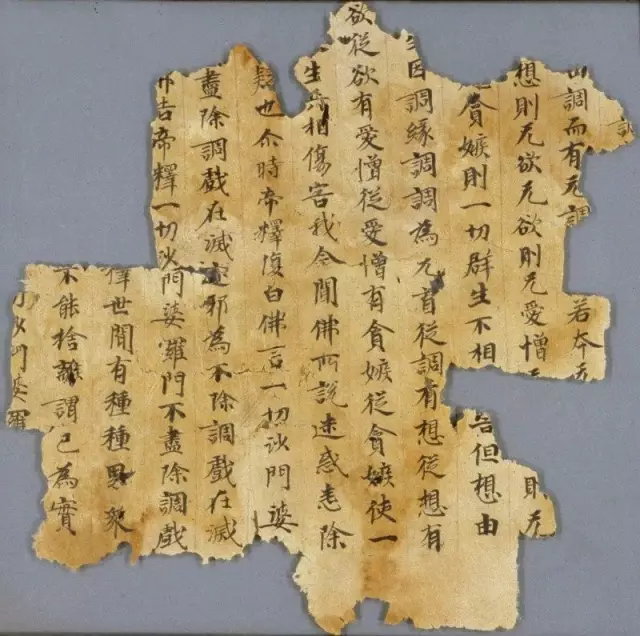 調
調而有无調若本无
想則无欲无欲則无愛憎无則无
貪嫉則一切群生不相害但想由
因調緣調調為元首從調有想從想有
欲從欲有愛憎從愛憎有貪嫉從貪嫉使一
生共相傷害我今聞佛所說迷惑悉除
疑也尒時帝釋復白佛言一切沙門婆
盡除調戲在滅迹耶為不除調戲在滅
告帝釋一切沙門婆羅門不盡除調戲
世間有種種界眾
不能捨離謂己為實
沙門婆羅